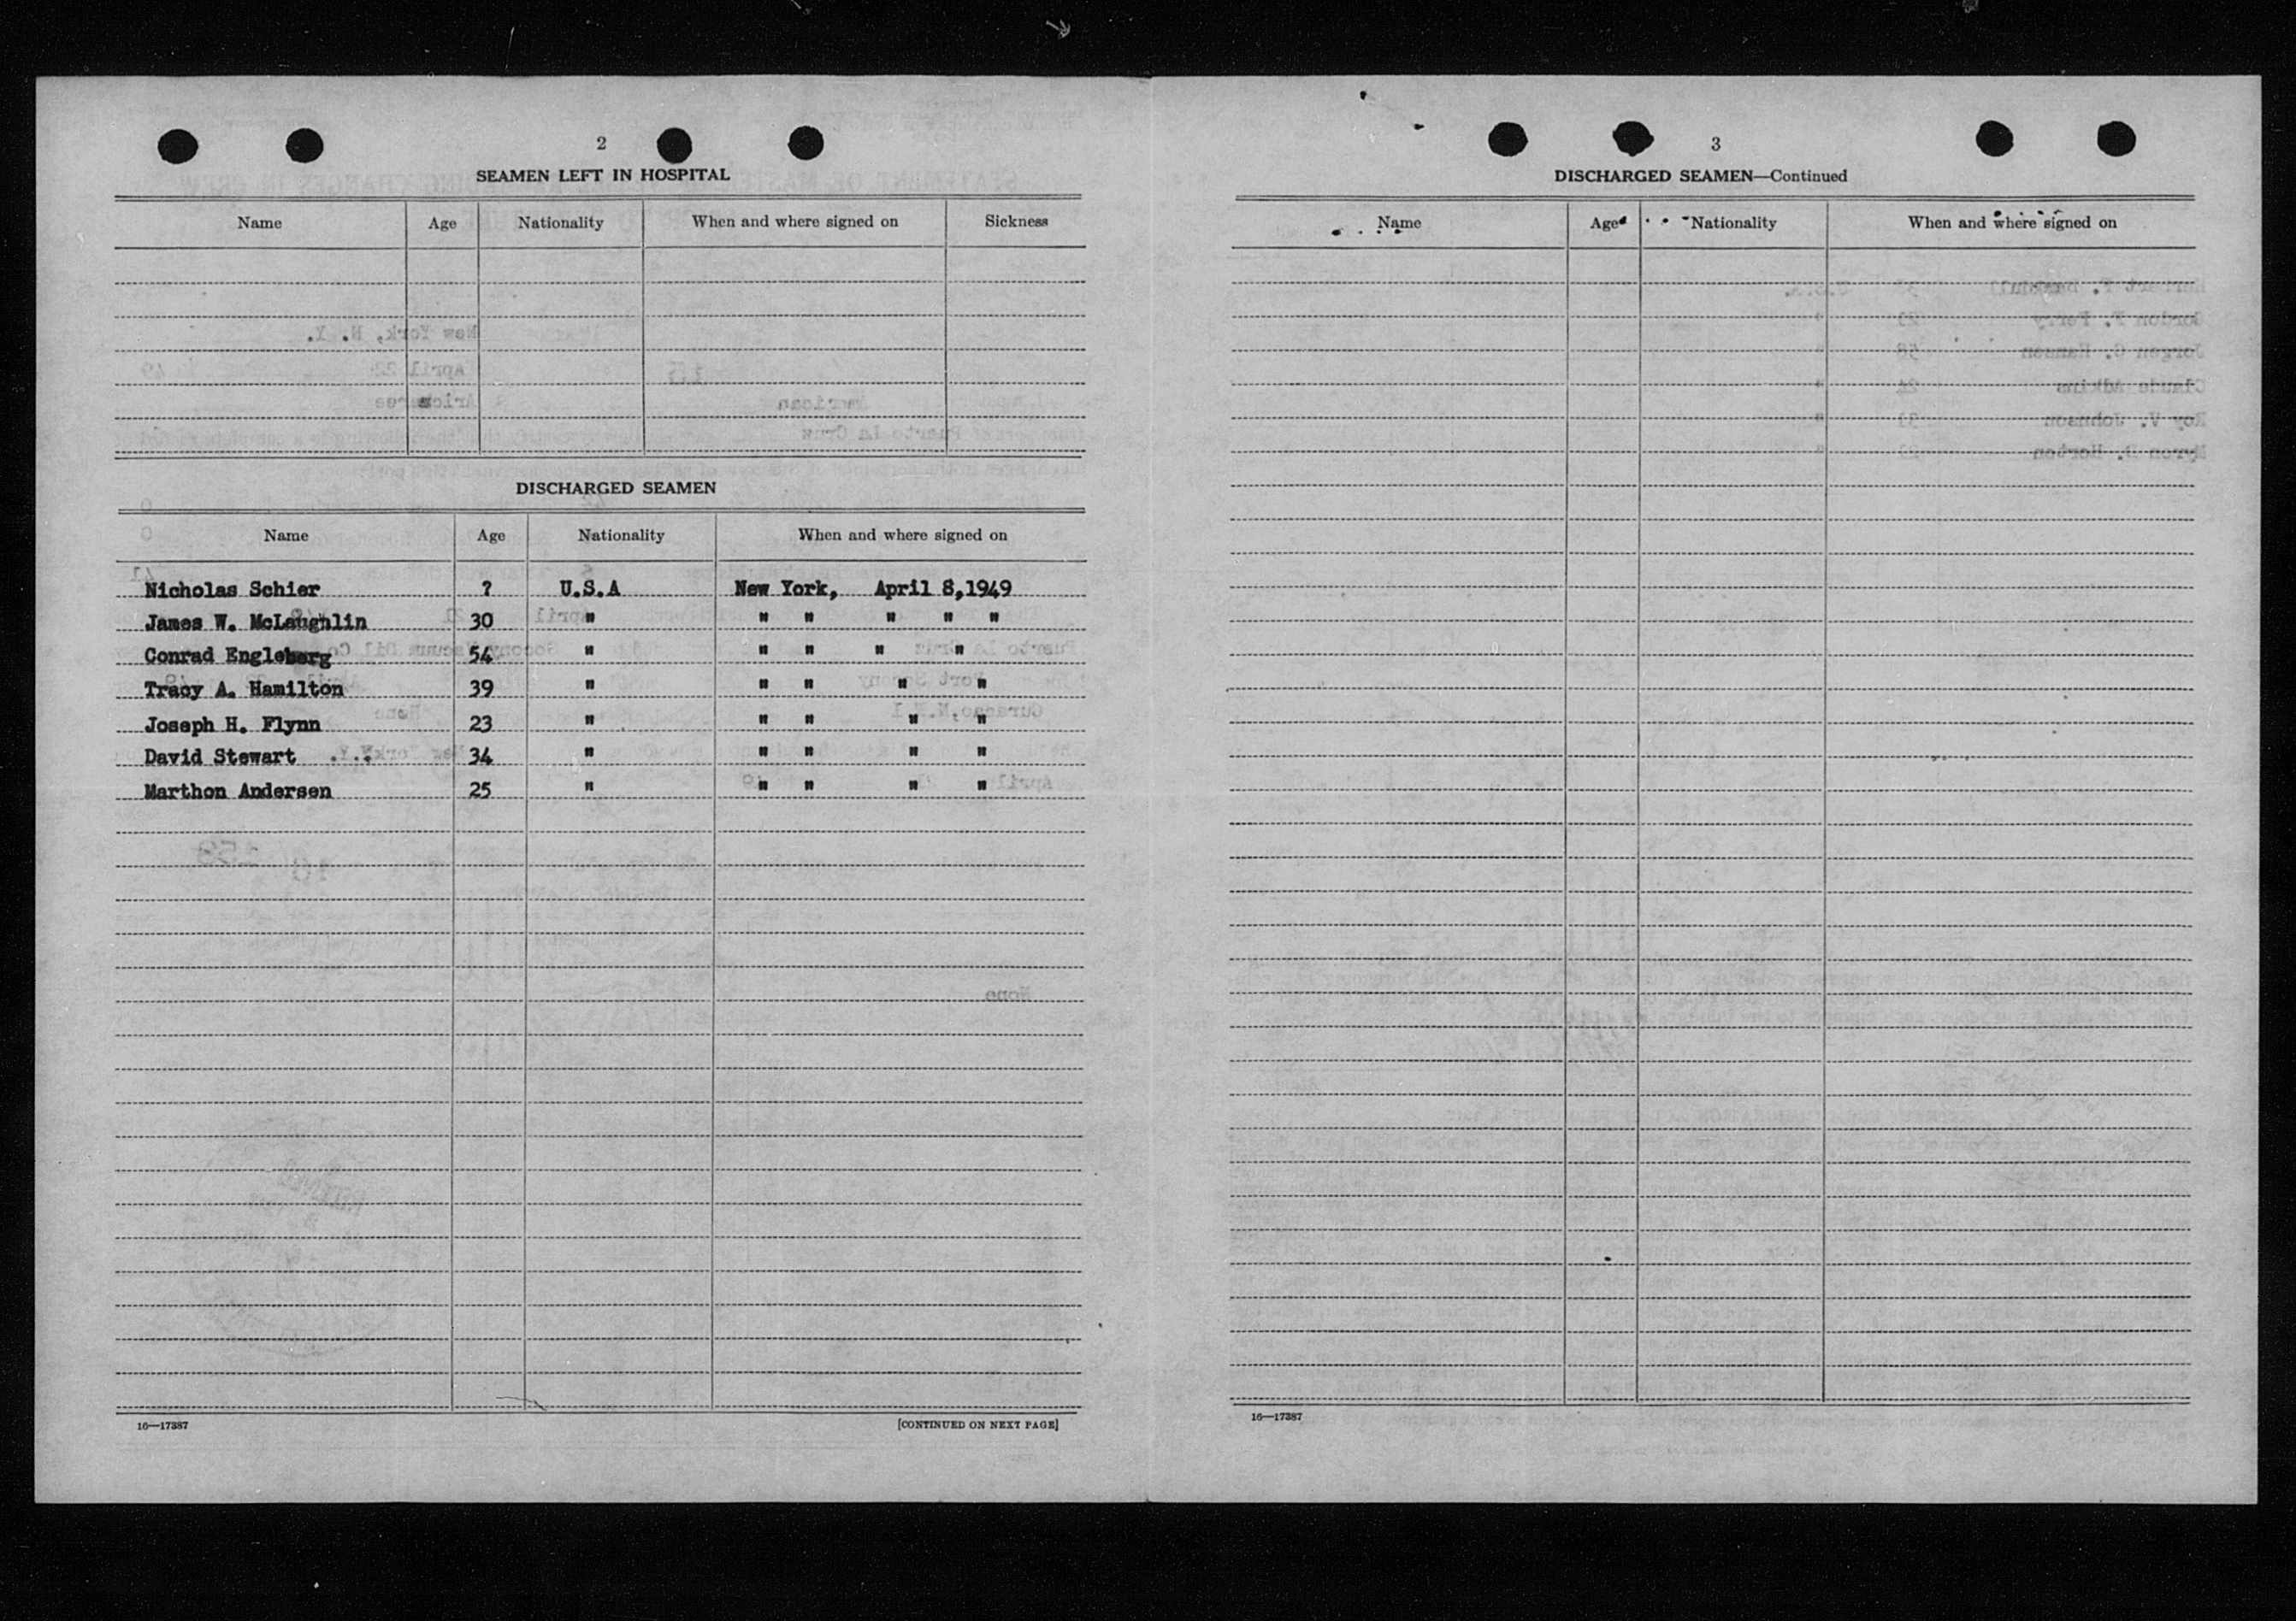 2
SEAMEN LEFT IN HOSPITAL
Name Age Nationality When and where signed on Sickness
DISCHARGED SEAMEN
Name Age Nationality When and where signed on
Nicholas Schier ? U.S.A New York, April 8,1949
James W. McLaughlin 30 " " " " " "
Conrad Engleberg 54 " " " " "
Tracy A. Hamilton 39 " " " " "
Joseph H. Flynn 23 " " " " "
David Stewart 34 " " " " "
Marthon Andersen 25 " " " " "
16—17387 [CONTINUED ON NEXT PAGE]
3
DISCHARGED SEAMEN—Continued
Name Age Nationality When and where signed on
16—17387